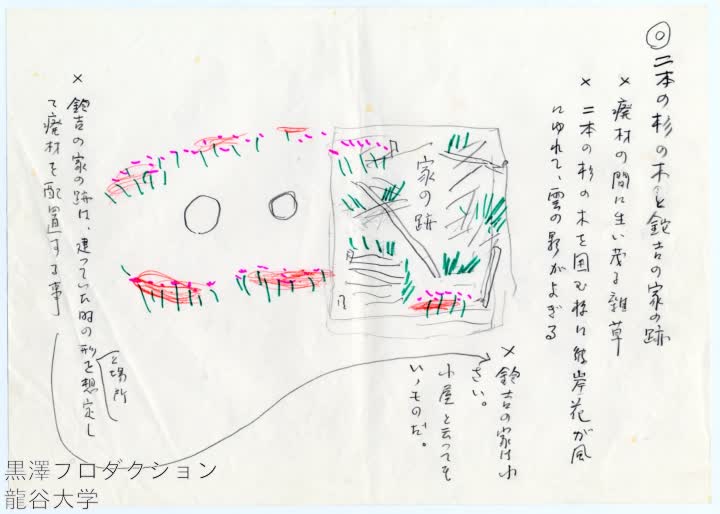 ◎ 二本の杉の木と鉈吉の家の跡
× 廃材の間に生い茂る雑草
× 二本の杉の木を囲む様に彼岸花が風
にゆれて、雲の影がよぎる
一家の跡
× 鉈吉の家は小
さい。
小屋と云っても
いゝものだ。
× 鉈吉の家の跡は、建っていた時の形を想定し
と場所
て廃材を配置する事
黒澤プロダクション
龍谷大学